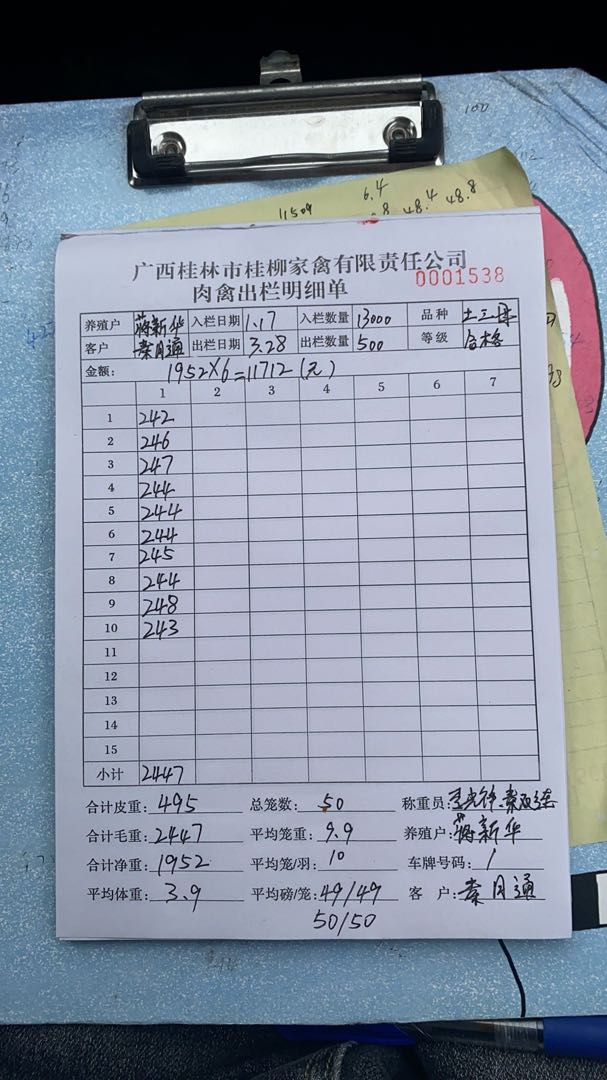 100
6.4
11509
48.4 48.8
广西桂林市桂柳家禽有限责任公司
0001538
肉禽出栏明细单
养殖户 蒋新华 入栏日期 1.17 入栏数量 13000 品种 土三
客户 秦月通 出栏日期 3.28 出栏数量 500 等级 合格
金额: 1952×6=11712(元)
1 2 3 4 5 6 7
1 242
2 246
3 247
4 244
5 244
6 244
7 245
8 244
9 248
10 243
11
12
13
14
15
小计 2447
合计皮重: 495 总笼数: 50 称重员:
合计毛重: 2447 平均笼重: 9.9 养殖户: 蒋新华
合计净重: 1952 平均笼/羽: 10 车牌号码: /
平均体重: 3.9 平均磅/笼: 49/49 客 户: 秦月通
50/50